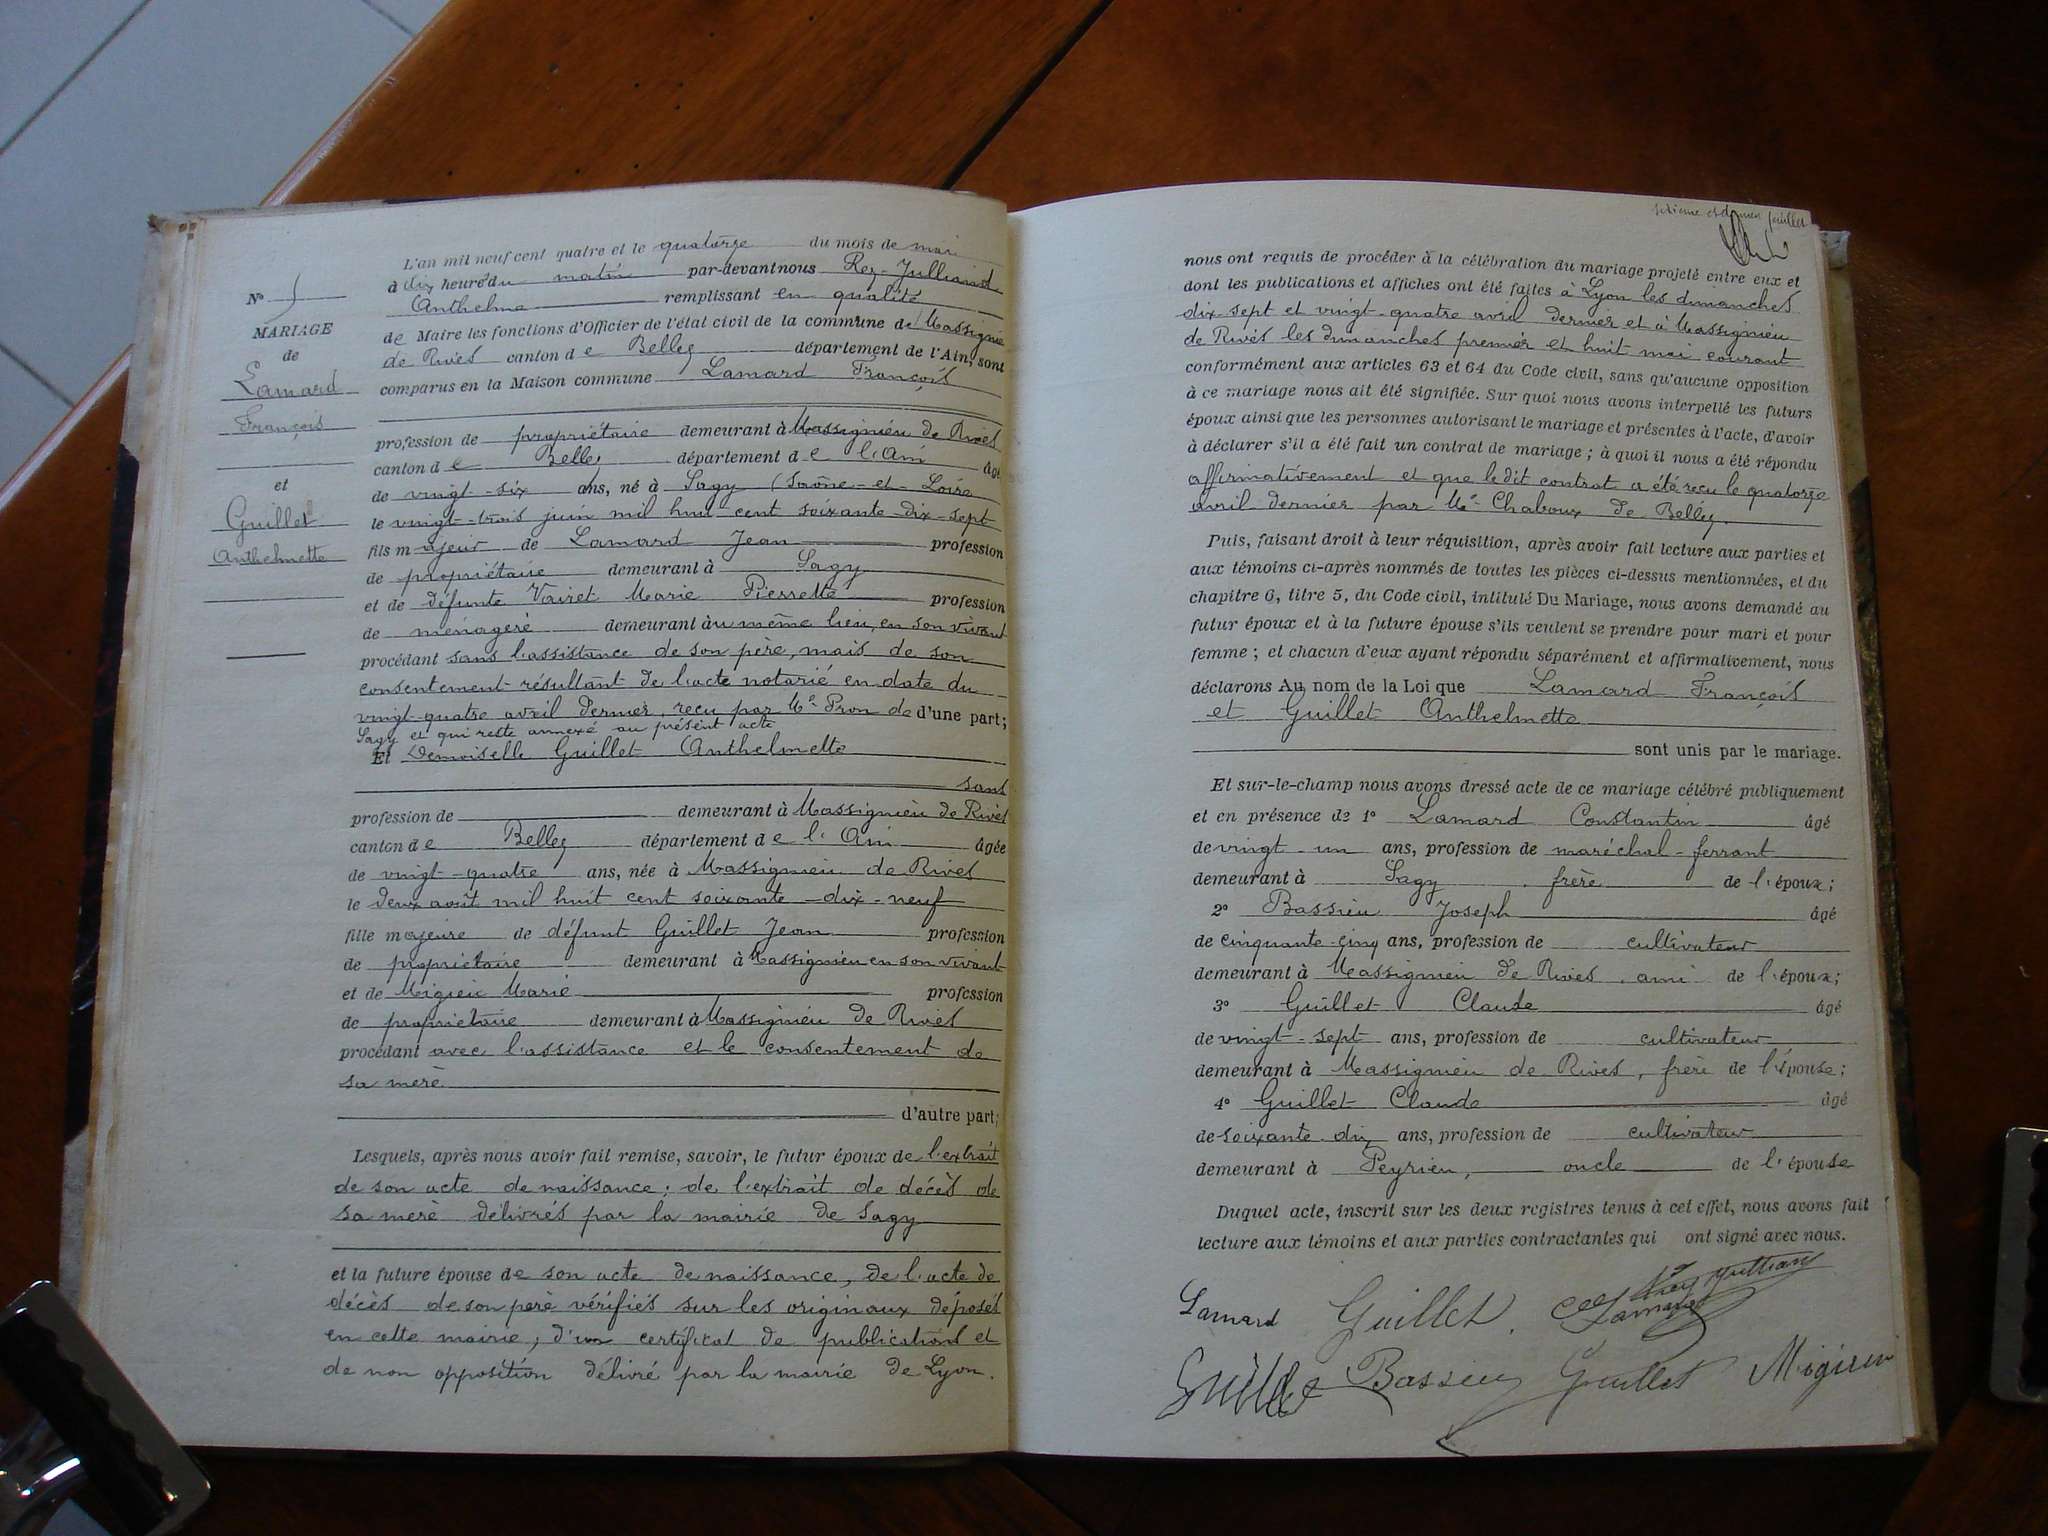 N° 5
MARIAGE
de
Lamard
François
et
Guillet
Anthelmette
L'an mil neuf cent quatre et le quatorze du mois de mai
à dix heure du matin par-devant nous Rey-Jullian
Anthelme remplissant en qualité
de Maire les fonctions d'Officier de l'état civil de la commune de Massignieu
de Rives canton de Belley département de l'Ain, sont
comparus en la Maison commune Lamard François
profession de propriétaire demeurant à Massignieu de Rives
canton de Belley département de l'Ain âgé
de vingt-six ans, né à Sagy (Saône-et-Loire
le vingt-trois juin mil huit cent soixante-dix-sept
fils majeur de Lamard Jean profession
de propriétaire demeurant à Sagy
et de défunte Vairet Marie Pierrette profession
de ménagère demeurant au même lieu, en son vivant
procédant sans l'assistance de son père, mais de son
consentement résultant de l'acte notarié en date du
vingt-quatre avril dernier, reçu par Me Pron de d'une part;
Sagy et qui reste annexé au présent acte
Et Demoiselle Guillet Anthelmette
sans
profession de demeurant à Massignieu de Rives
canton de Belley département de l'Ain âgée
de vingt-quatre ans, née à Massignieu de Rives
le deux août mil huit cent soixante-dix-neuf
fille majeure de défunt Guillet Jean profession
de propriétaire demeurant à Massignieu en son vivant
et de Migieu Marie profession
de propriétaire demeurant à Massignieu de Rives
procédant avec l'assistance et le consentement de
sa mère
d'autre part;
Lesquels, après nous avoir fait remise, savoir, le futur époux de l'extrait
de son acte de naissance; de l'extrait de décès de
sa mère délivrés par la mairie de Sagy
et la future épouse de son acte de naissance, de l'acte de
décès de son père vérifiés sur les originaux déposés
en cette mairie; d'un certificat de publications et
de non opposition délivré par la mairie de Lyon.
feuillet
nous ont requis de procéder à la célébration du mariage projeté entre eux et
dont les publications et affiches ont été faites à Lyon les dimanches
dix sept et vingt-quatre avril dernier et à Massignieu
de Rives les dimanches premier et huit mai courant
conformément aux articles 63 et 64 du Code civil, sans qu'aucune opposition
à ce mariage nous ait été signifiée. Sur quoi nous avons interpellé les futurs
époux ainsi que les personnes autorisant le mariage et présentes à l'acte, d'avoir
à déclarer s'il a été fait un contrat de mariage; à quoi il nous a été répondu
affirmativement et que le dit contrat a été reçu le quatorze
avril dernier par Me Chaboux de Belley.
Puis, faisant droit à leur réquisition, après avoir fait lecture aux parties et
aux témoins ci-après nommés de toutes les pièces ci-dessus mentionnées, et du
chapitre 6, titre 5, du Code civil, intitulé Du Mariage, nous avons demandé au
futur époux et à la future épouse s'ils veulent se prendre pour mari et pour
femme; et chacun d'eux ayant répondu séparément et affirmativement, nous
déclarons Au nom de la Loi que Lamard François
et Guillet Anthelmette
sont unis par le mariage.
Et sur-le-champ nous avons dressé acte de ce mariage célébré publiquement
et en présence de 1° Lamard Constantin âgé
de vingt-un ans, profession de maréchal-ferrant
demeurant à Sagy, frère de l'époux;
2° Bassieu Joseph âgé
de cinquante-cinq ans, profession de cultivateur
demeurant à Massignieu de Rives, ami de l'époux;
3° Guillet Claude âgé
de vingt-sept ans, profession de cultivateur
demeurant à Massignieu de Rives, frère de l'épouse;
4° Guillet Claude âgé
de soixante-dix ans, profession de cultivateur
demeurant à Peyrieu, oncle de l'épouse
Duquel acte, inscrit sur les deux registres tenus à cet effet, nous avons fait
lecture aux témoins et aux parties contractantes qui ont signé avec nous.
Lamard Guillet Lamard Rey Jullian
Guillet Bassieu Guillet Migieu